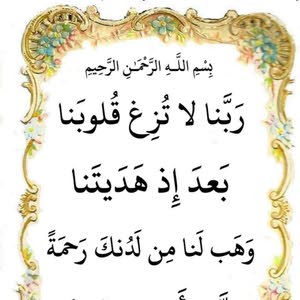 بِسْمِ اللَّـهِ الرَّحْمَـٰنِ الرَّحِيمِ
رَبَّنا لا تُزِغ قُلوبَنا
بَعدَ إِذ هَدَيتَنا
وَهَب لَنا مِن لَدُنكَ رَحمَةً